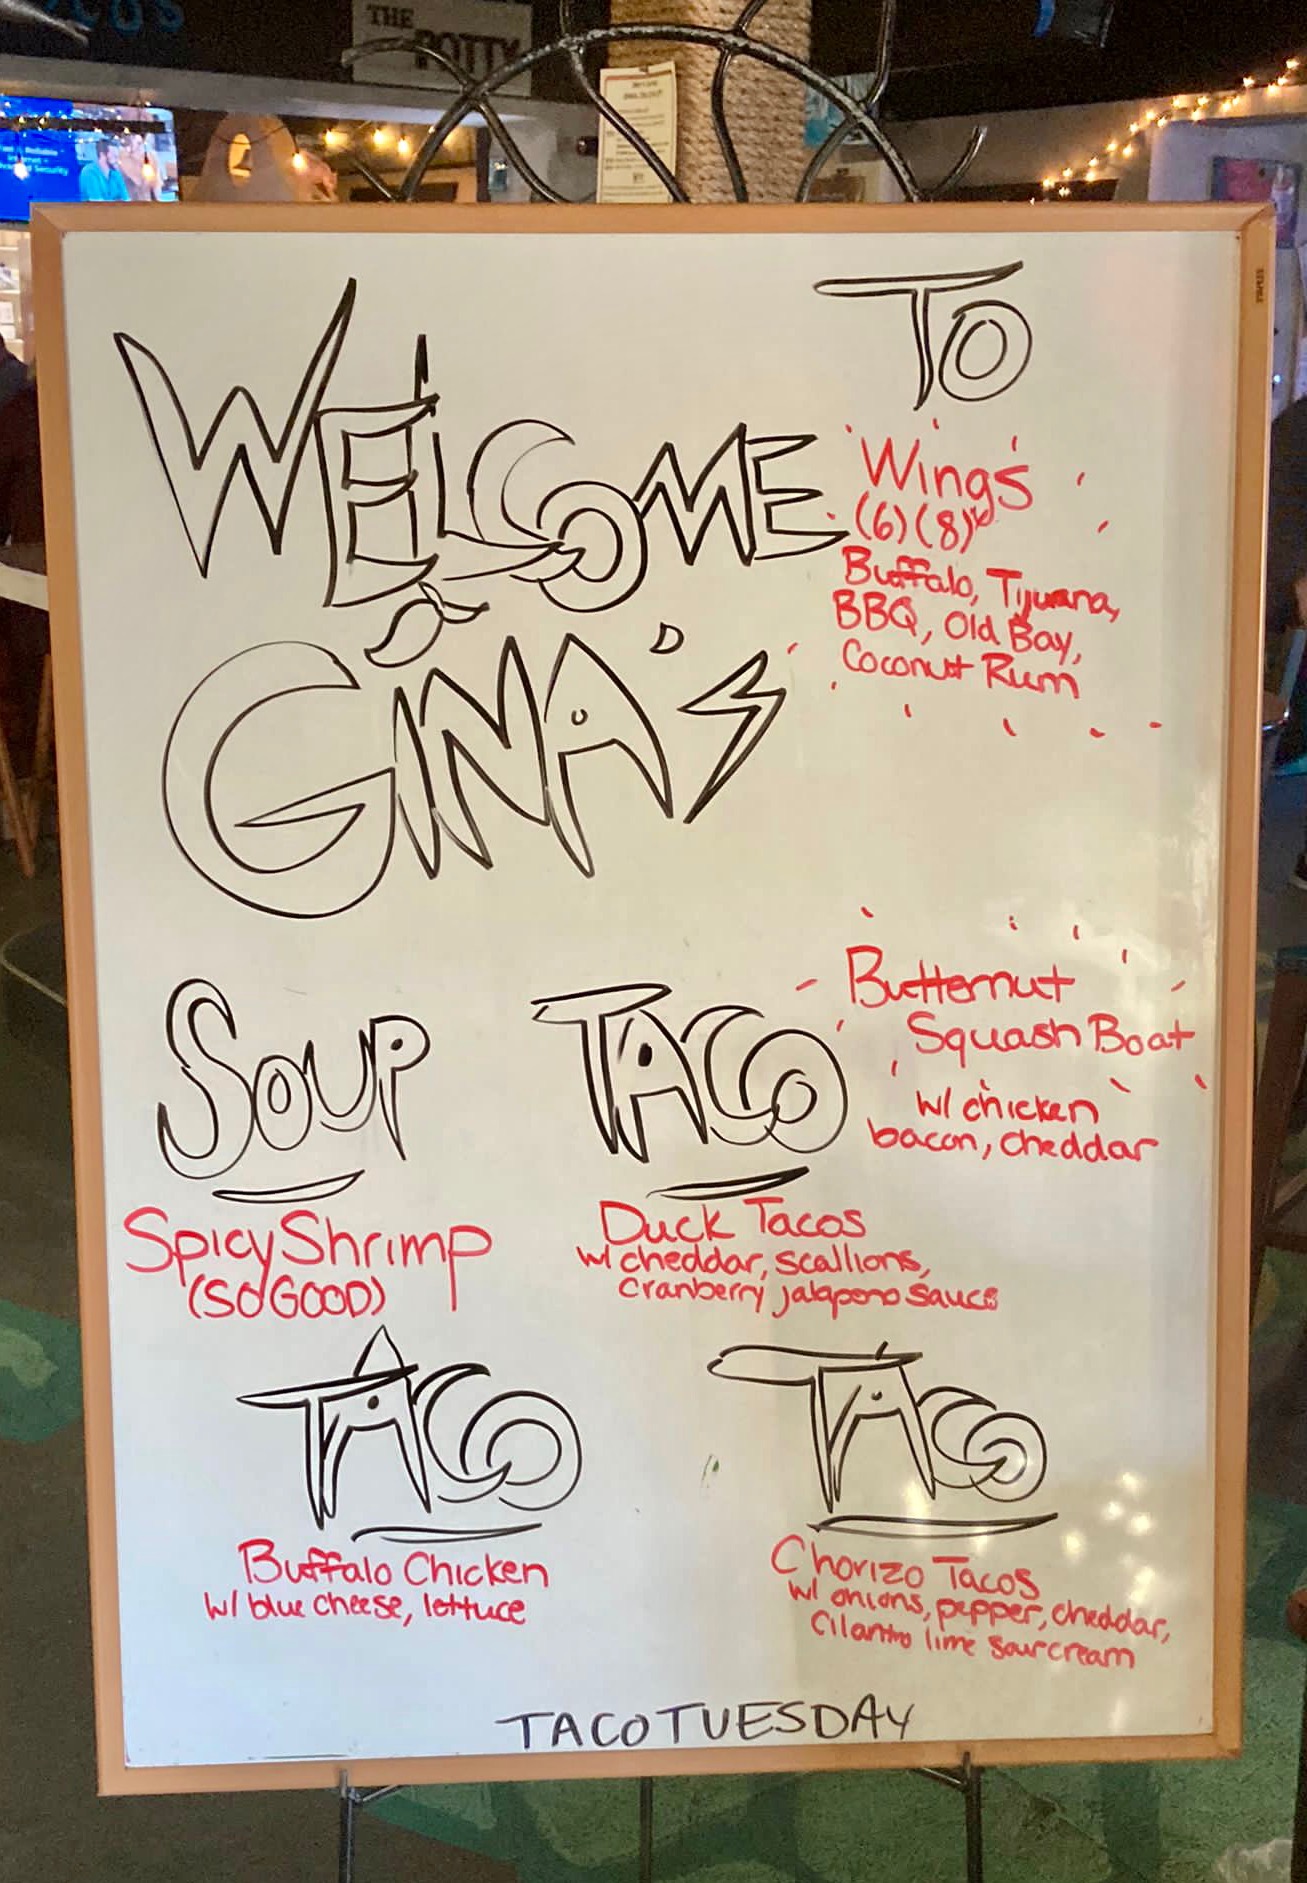 THE
POTTY
WELCOME TO
GINA'S
Wings
(6) (8)
Buffalo, Tijuana,
BBQ, Old Bay,
Coconut Rum
SOUP
Spicy Shrimp
(SO GOOD)
TACO
Duck Tacos
w/ cheddar, scallions,
cranberry jalapeno sauce
Butternut
Squash Boat
w/ chicken
bacon, cheddar
TACO
Buffalo Chicken
w/ blue cheese, lettuce
TACO
Chorizo Tacos
w/ onions, pepper, cheddar,
cilantro lime sour cream
TACO TUESDAY